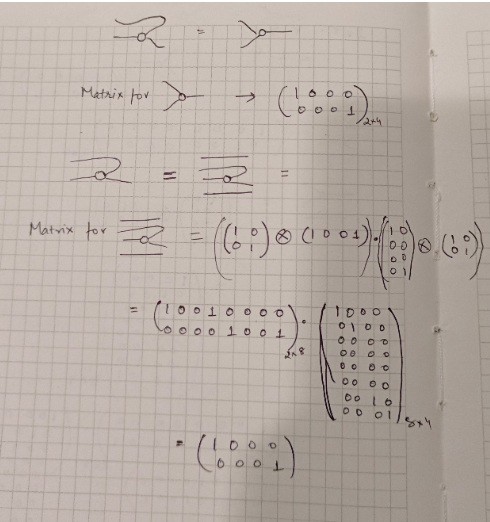 =
Matrix for → ( 1 0 0 0 / 0 0 0 1 ) 2×4
= =
Matrix for = ( ( 1 0 / 0 1 ) ⊗ ( 1 0 0 1 ) ) · ( ( 1 0 / 0 0 / 0 0 / 0 1 ) ⊗ ( 1 0 / 0 1 ) )
= ( 1 0 0 1 0 0 0 0 / 0 0 0 0 1 0 0 1 ) 2×8 · ( 1 0 0 0 / 0 1 0 0 / 0 0 0 0 / 0 0 0 0 / 0 0 0 0 / 0 0 0 0 / 0 0 1 0 / 0 0 0 1 ) 8×4
= ( 1 0 0 0 / 0 0 0 1 )